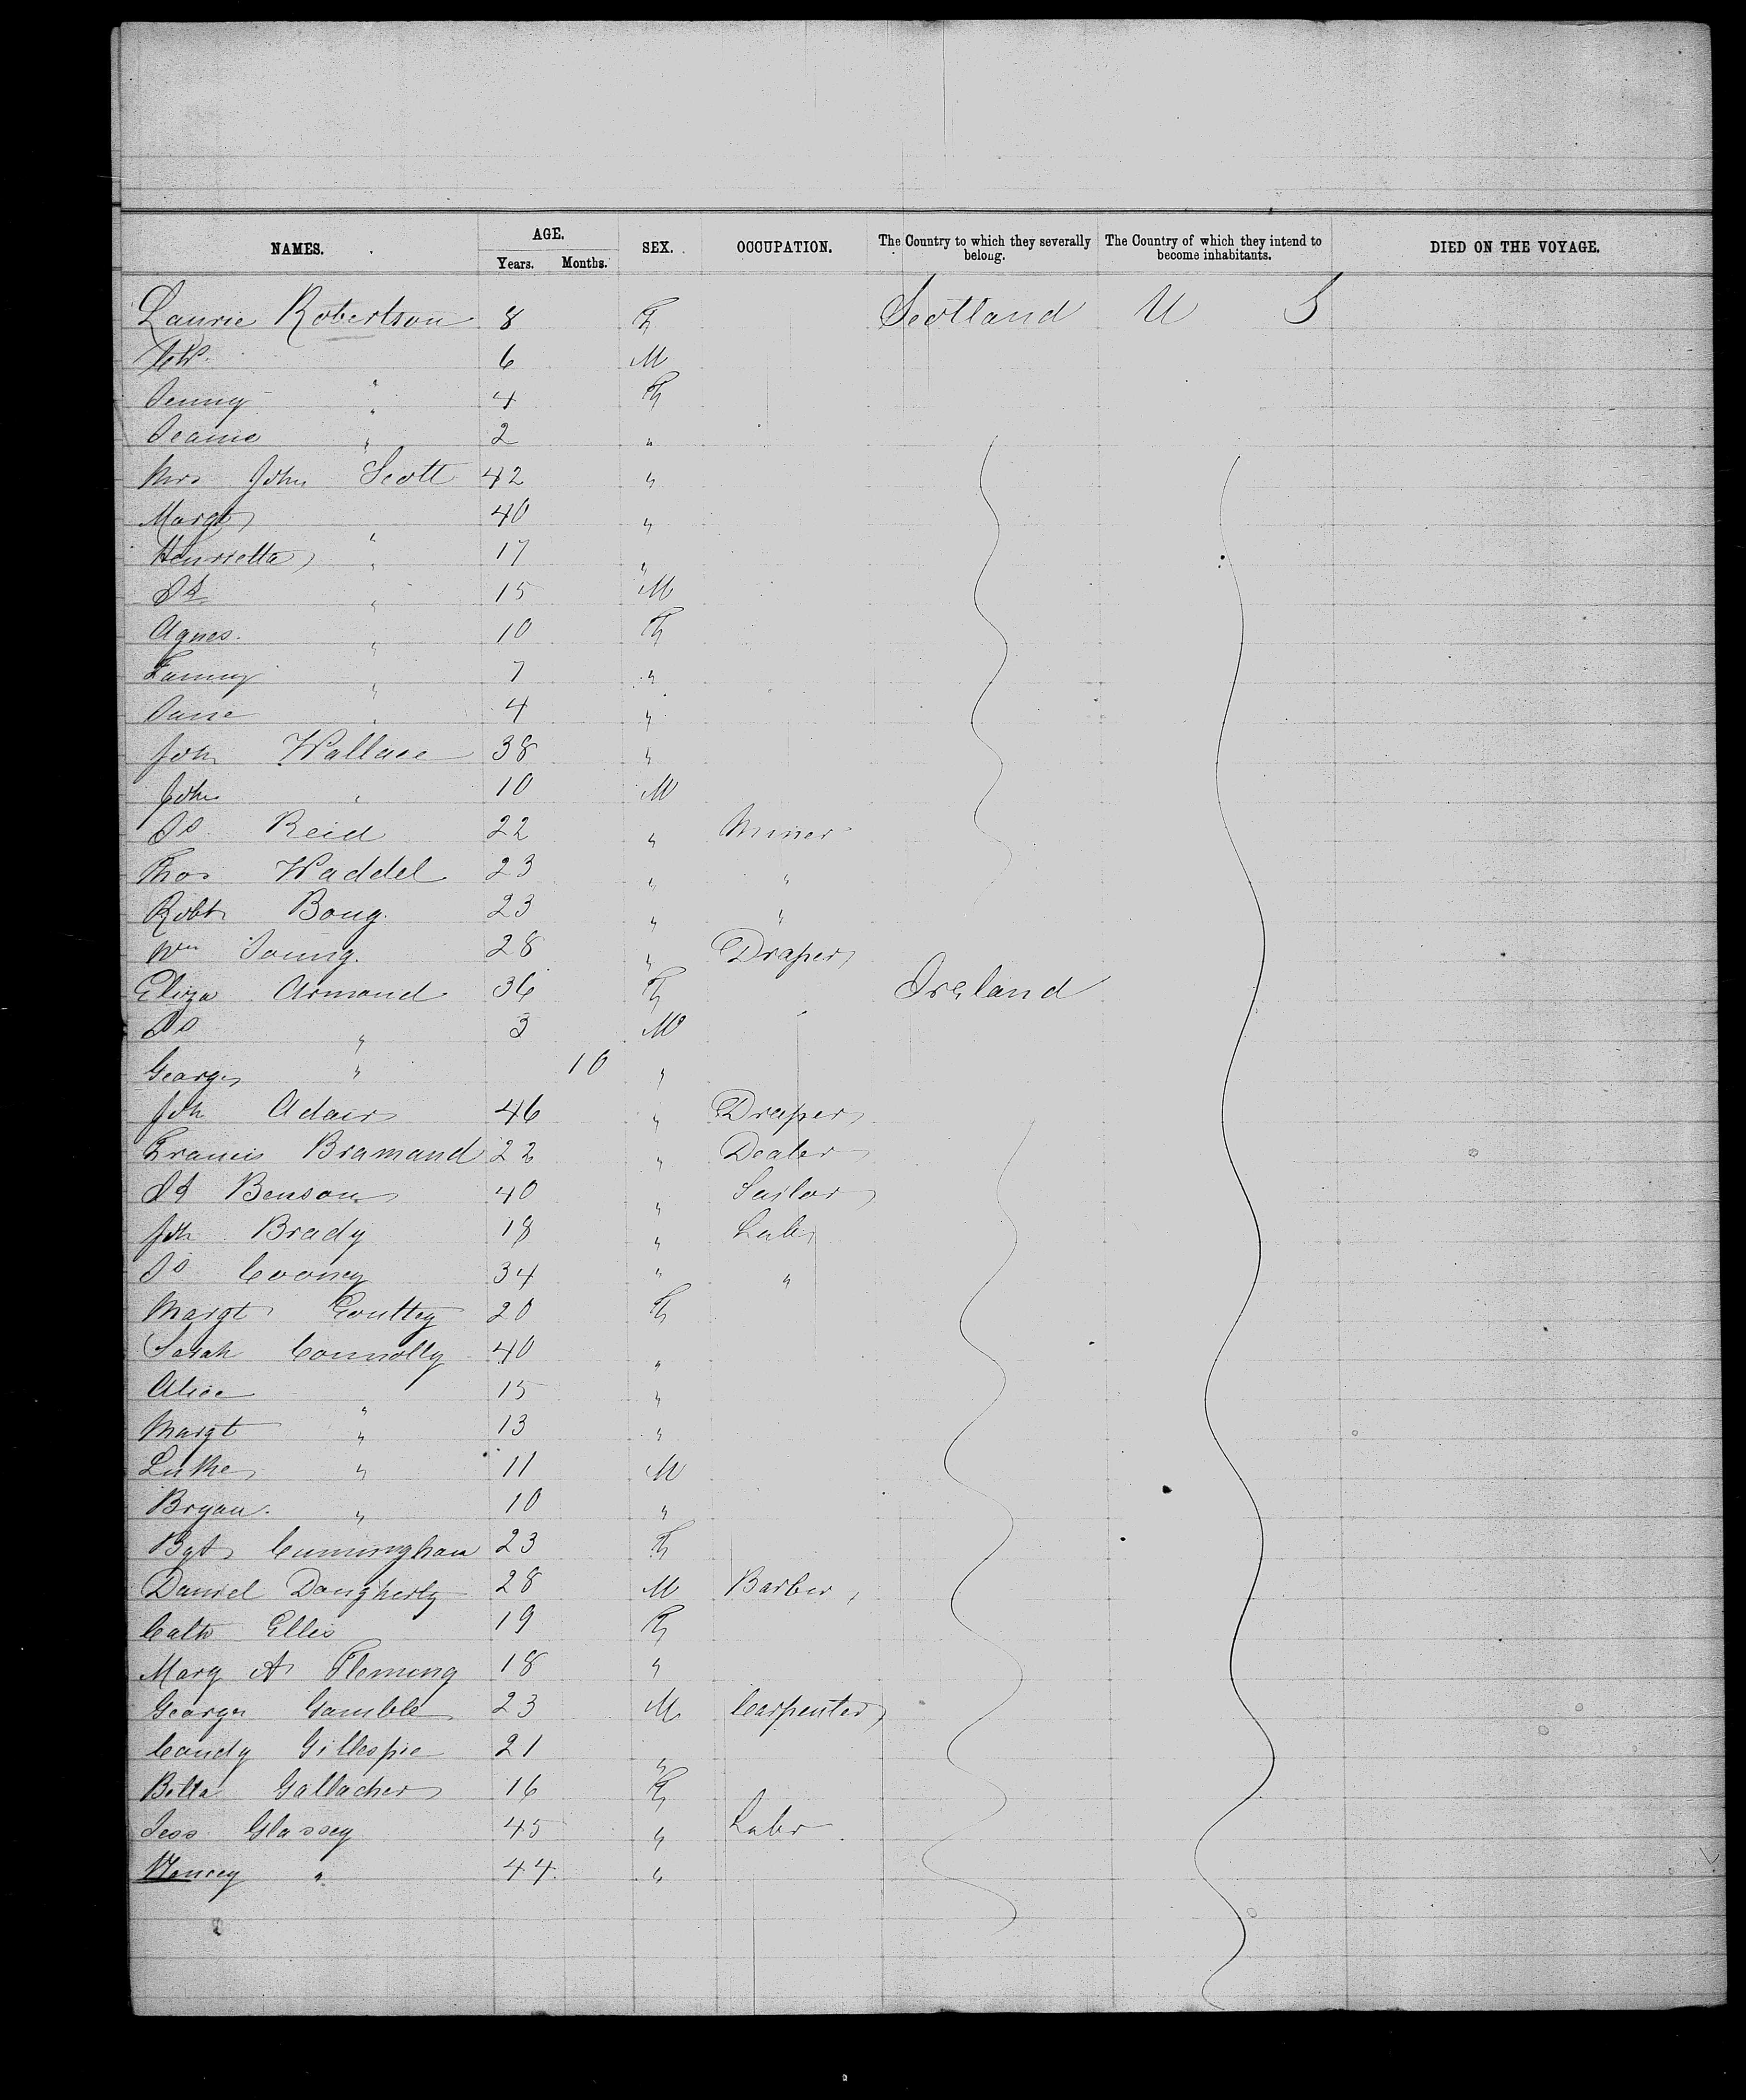 NAMES. AGE. SEX. OCCUPATION. The Country to which they severally belong. The Country of which they intend to become inhabitants. DIED ON THE VOYAGE.
Years. Months.
Laurie Robertson 8 F Scotland U S
6 M
Jenny " 4 F
" 2 "
Mrs John Scott 42 "
Margt " 40 "
Henrietta " 17 "
" 15 M
Agnes " 10 F
Fanny " 7 "
Jane " 4 "
Joh Wallace 38 "
John " 10 M
Js Reid 22 " Miner
Thos Waddel 23 " "
Robt 23 " "
Wm Young 28 " Draper
Eliza Armand 36 F Ireland
Js " 3 M
George " 10 "
Joh Adair 46 " Draper
Francis Bramand 22 " Dealer
Benson 40 "
Joh Brady 18 " Lab
Js Cooney 34 " "
Margt 20 F
Sarah Connolly 40 "
Alice " 15 "
Margt " 13 "
Luke " 11 M
Bryan " 10 "
Bgt Cunningham 23 F
Daniel Dougherty 28 M Barber
Cath Ellis 19 F
Mary A Fleming 18 "
George Gamble 23 M Carpenter
Condy Gillespie 21 "
Bella Gallacher 16 F
Glassey 45 " Labr
" 44 "